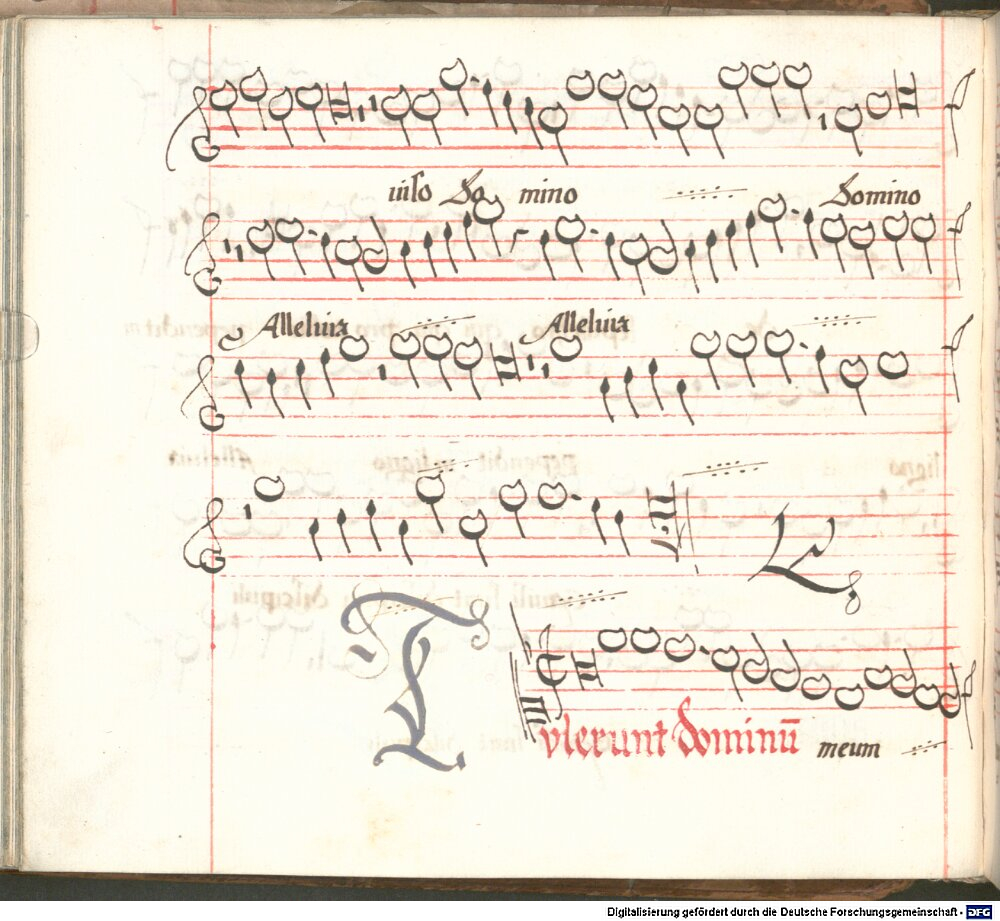 uiso Do mino Domino
Alleluia Alleluia
T
vlerunt dominū meum
Digitalisierung gefördert durch die Deutsche Forschungsgemeinschaft - DFG